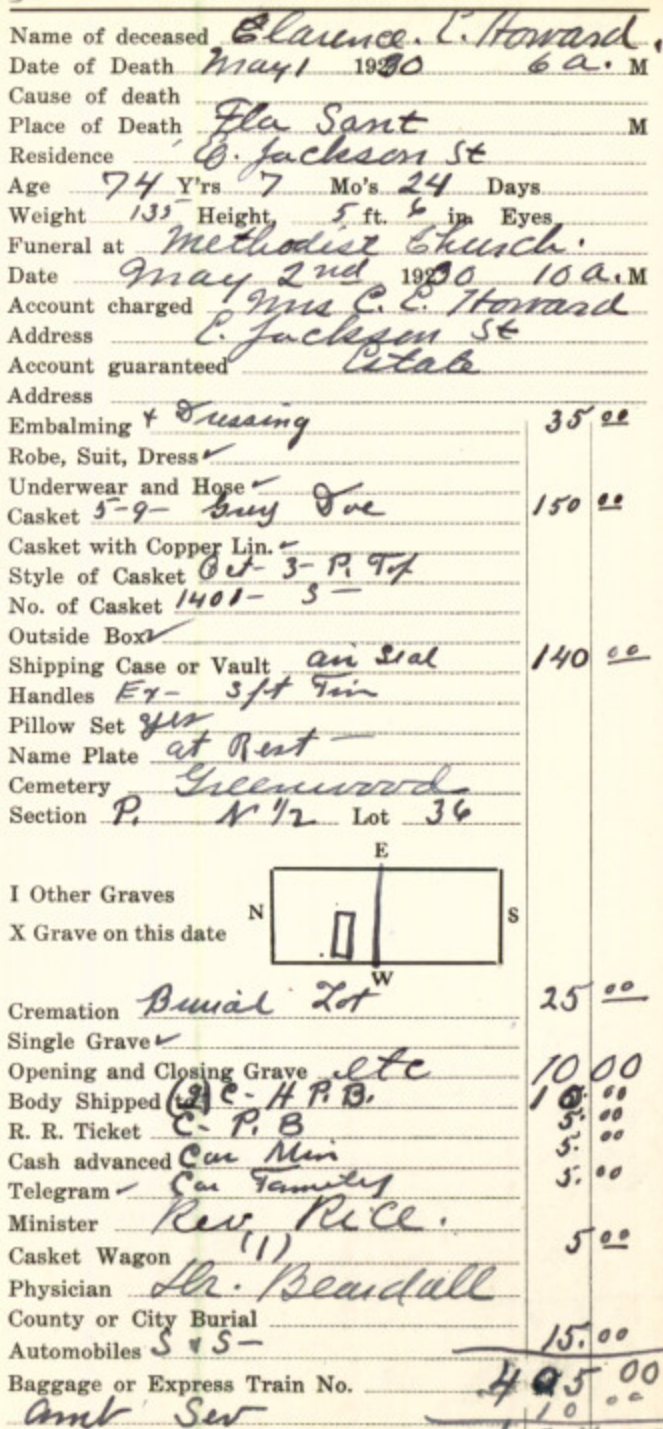 Name of deceased Clarence. E. Howard.
Date of Death May 1 1930 6 a. M
Cause of death
Place of Death Fla Sant M
Residence E. Jackson St
Age 74 Y'rs 7 Mo's 24 Days
Weight 135 Height, 5 ft. 6 in. Eyes
Funeral at Methodist Church.
Date May 2nd 1930 10 a. M
Account charged Mrs C. E. Howard
Address E. Jackson St
Account guaranteed Estate
Address
Embalming + Dressing 35 00
Robe, Suit, Dress ✓
Underwear and Hose ✓
Casket 5-9- Grey Doe 150 00
Casket with Copper Lin. ✓
Style of Casket Oct- 3- P. Top
No. of Casket 1401- S-
Outside Box ✓
Shipping Case or Vault air Seal 140 00
Handles Ex- 3/t Tin
Pillow Set yes
Name Plate at Rest —
Cemetery Greenwood
Section P. N 1/2 Lot 36
E
I Other Graves
N S
X Grave on this date
W
Cremation Burial Lot 25 00
Single Grave ✓
Opening and Closing Grave etc 10 00
Body Shipped to (2) C- H P. B. 00
R. R. Ticket C- P. B 5. 00
Cash advanced Car Min 5. 00
Telegram ✓ Car Family 5. 00
Minister Rev. Rice.
Casket Wagon (1) 5 00
Physician Dr. Beardall
County or City Burial
Automobiles S & S- 15. 00
Baggage or Express Train No. 00
amt Sev 10 00